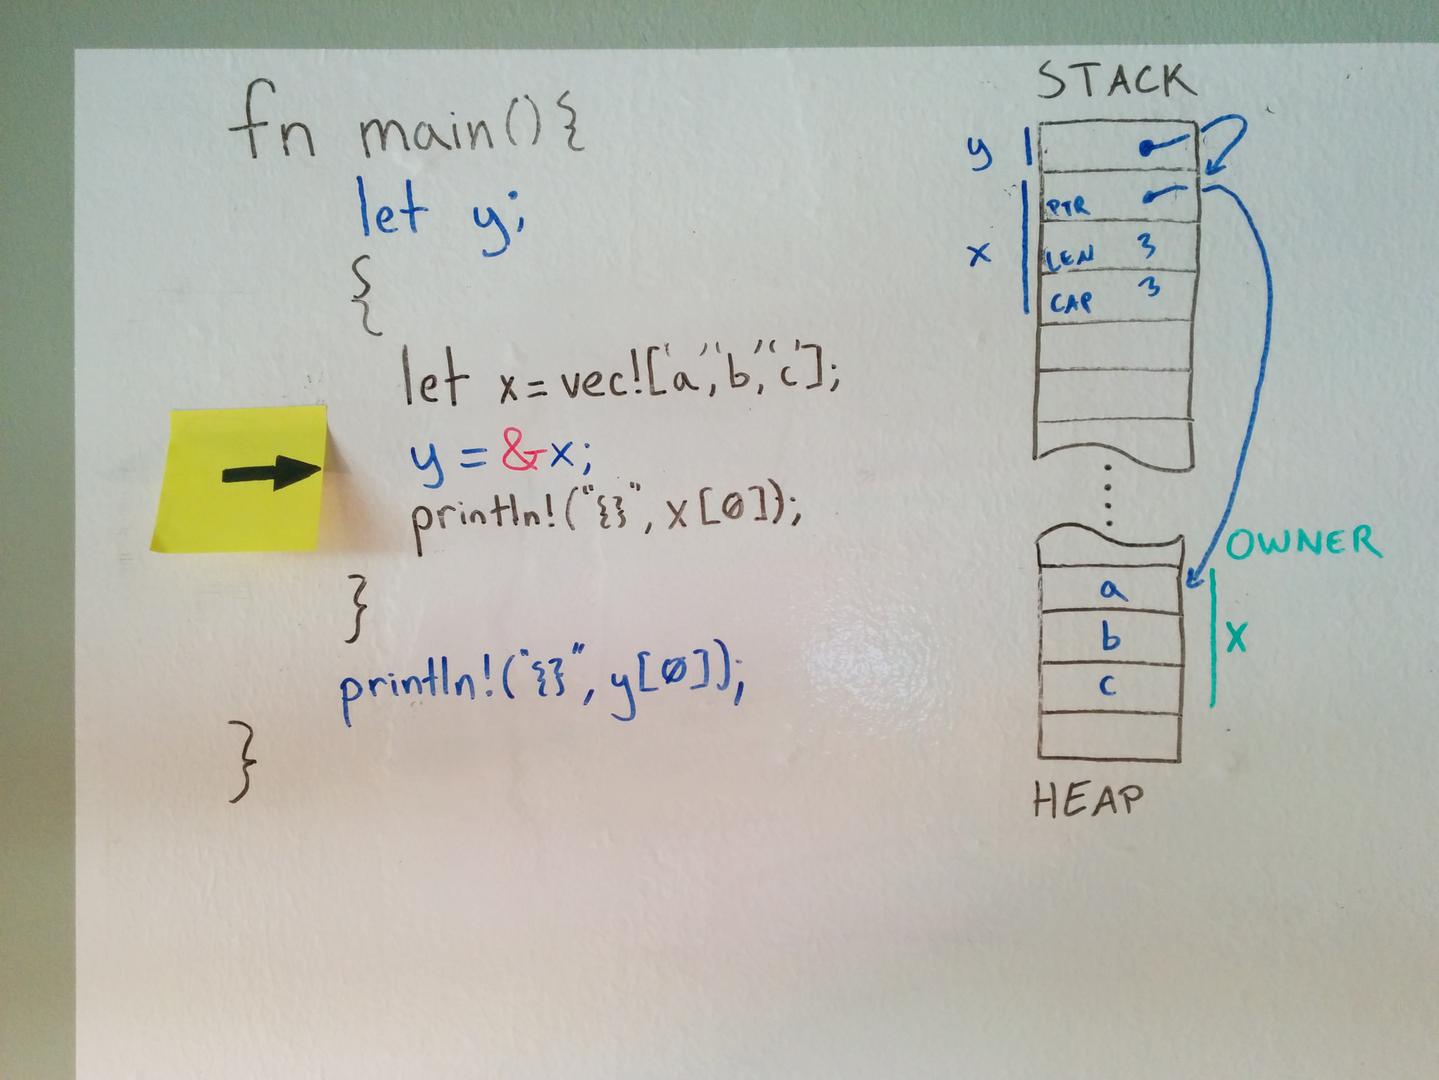 fn main(){
let y;
{
let x=vec!['a','b','c'];
y=&x;
println!("{}", x[0]);
}
println!("{}", y[0]);
}
STACK
y
x
PTR
LEN 3
CAP 3
OWNER
a
b
c
X
HEAP